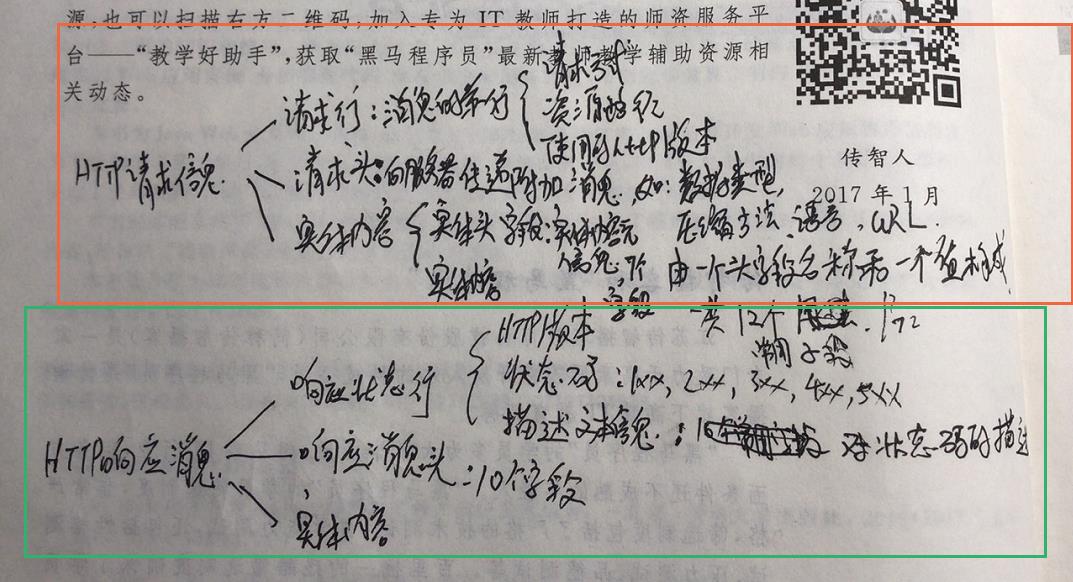 源,也可以扫描右方二维码,加入专为 IT 教师打造的师资服务平
台——“教学好助手”,获取“黑马程序员”最新 教学辅助资源相
关动态。
传智人
2017 年 1 月
HTTP请求信息
请求行:消息的第一行
请求方式
资源路径
使用的http版本
请求头:向服务器传递附加消息,如:数据类型,
压缩方法、语言,URL.
由一个头字段名称和一个值构成
一共12个 常用字段. P72
实体内容
实体头字段:实体内容元
信息,7个
字段
实体内容
HTTP响应消息
响应状态行
HTTP版本
状态码:1xx, 2xx, 3xx, 4xx, 5xx
描述文本信息: 对状态码的描述
响应消息头:10个字段
实体内容